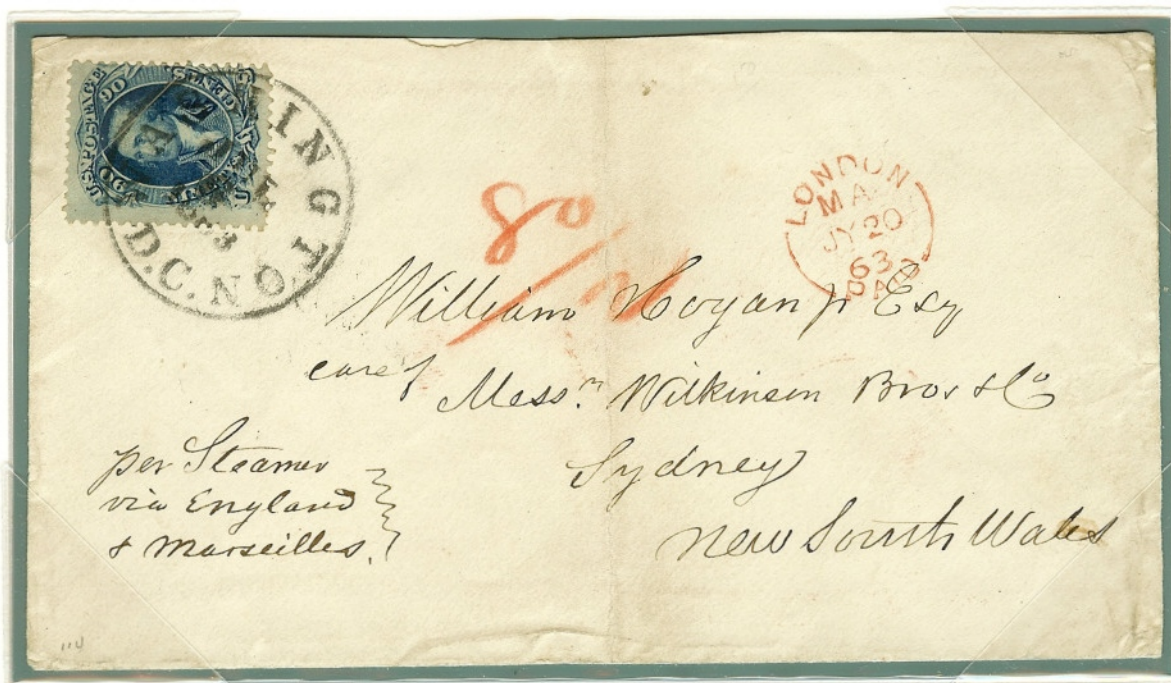 U.S. POSTAGE
90 90
WASHINGTON
D.C.
LONDON
JY 20
63
PAID
80/
William Hogan Jr Esq
care of
Messrs. Wilkinson Bros & Co
Sydney
New South Wales
per Steamer
via England
& Marseilles.